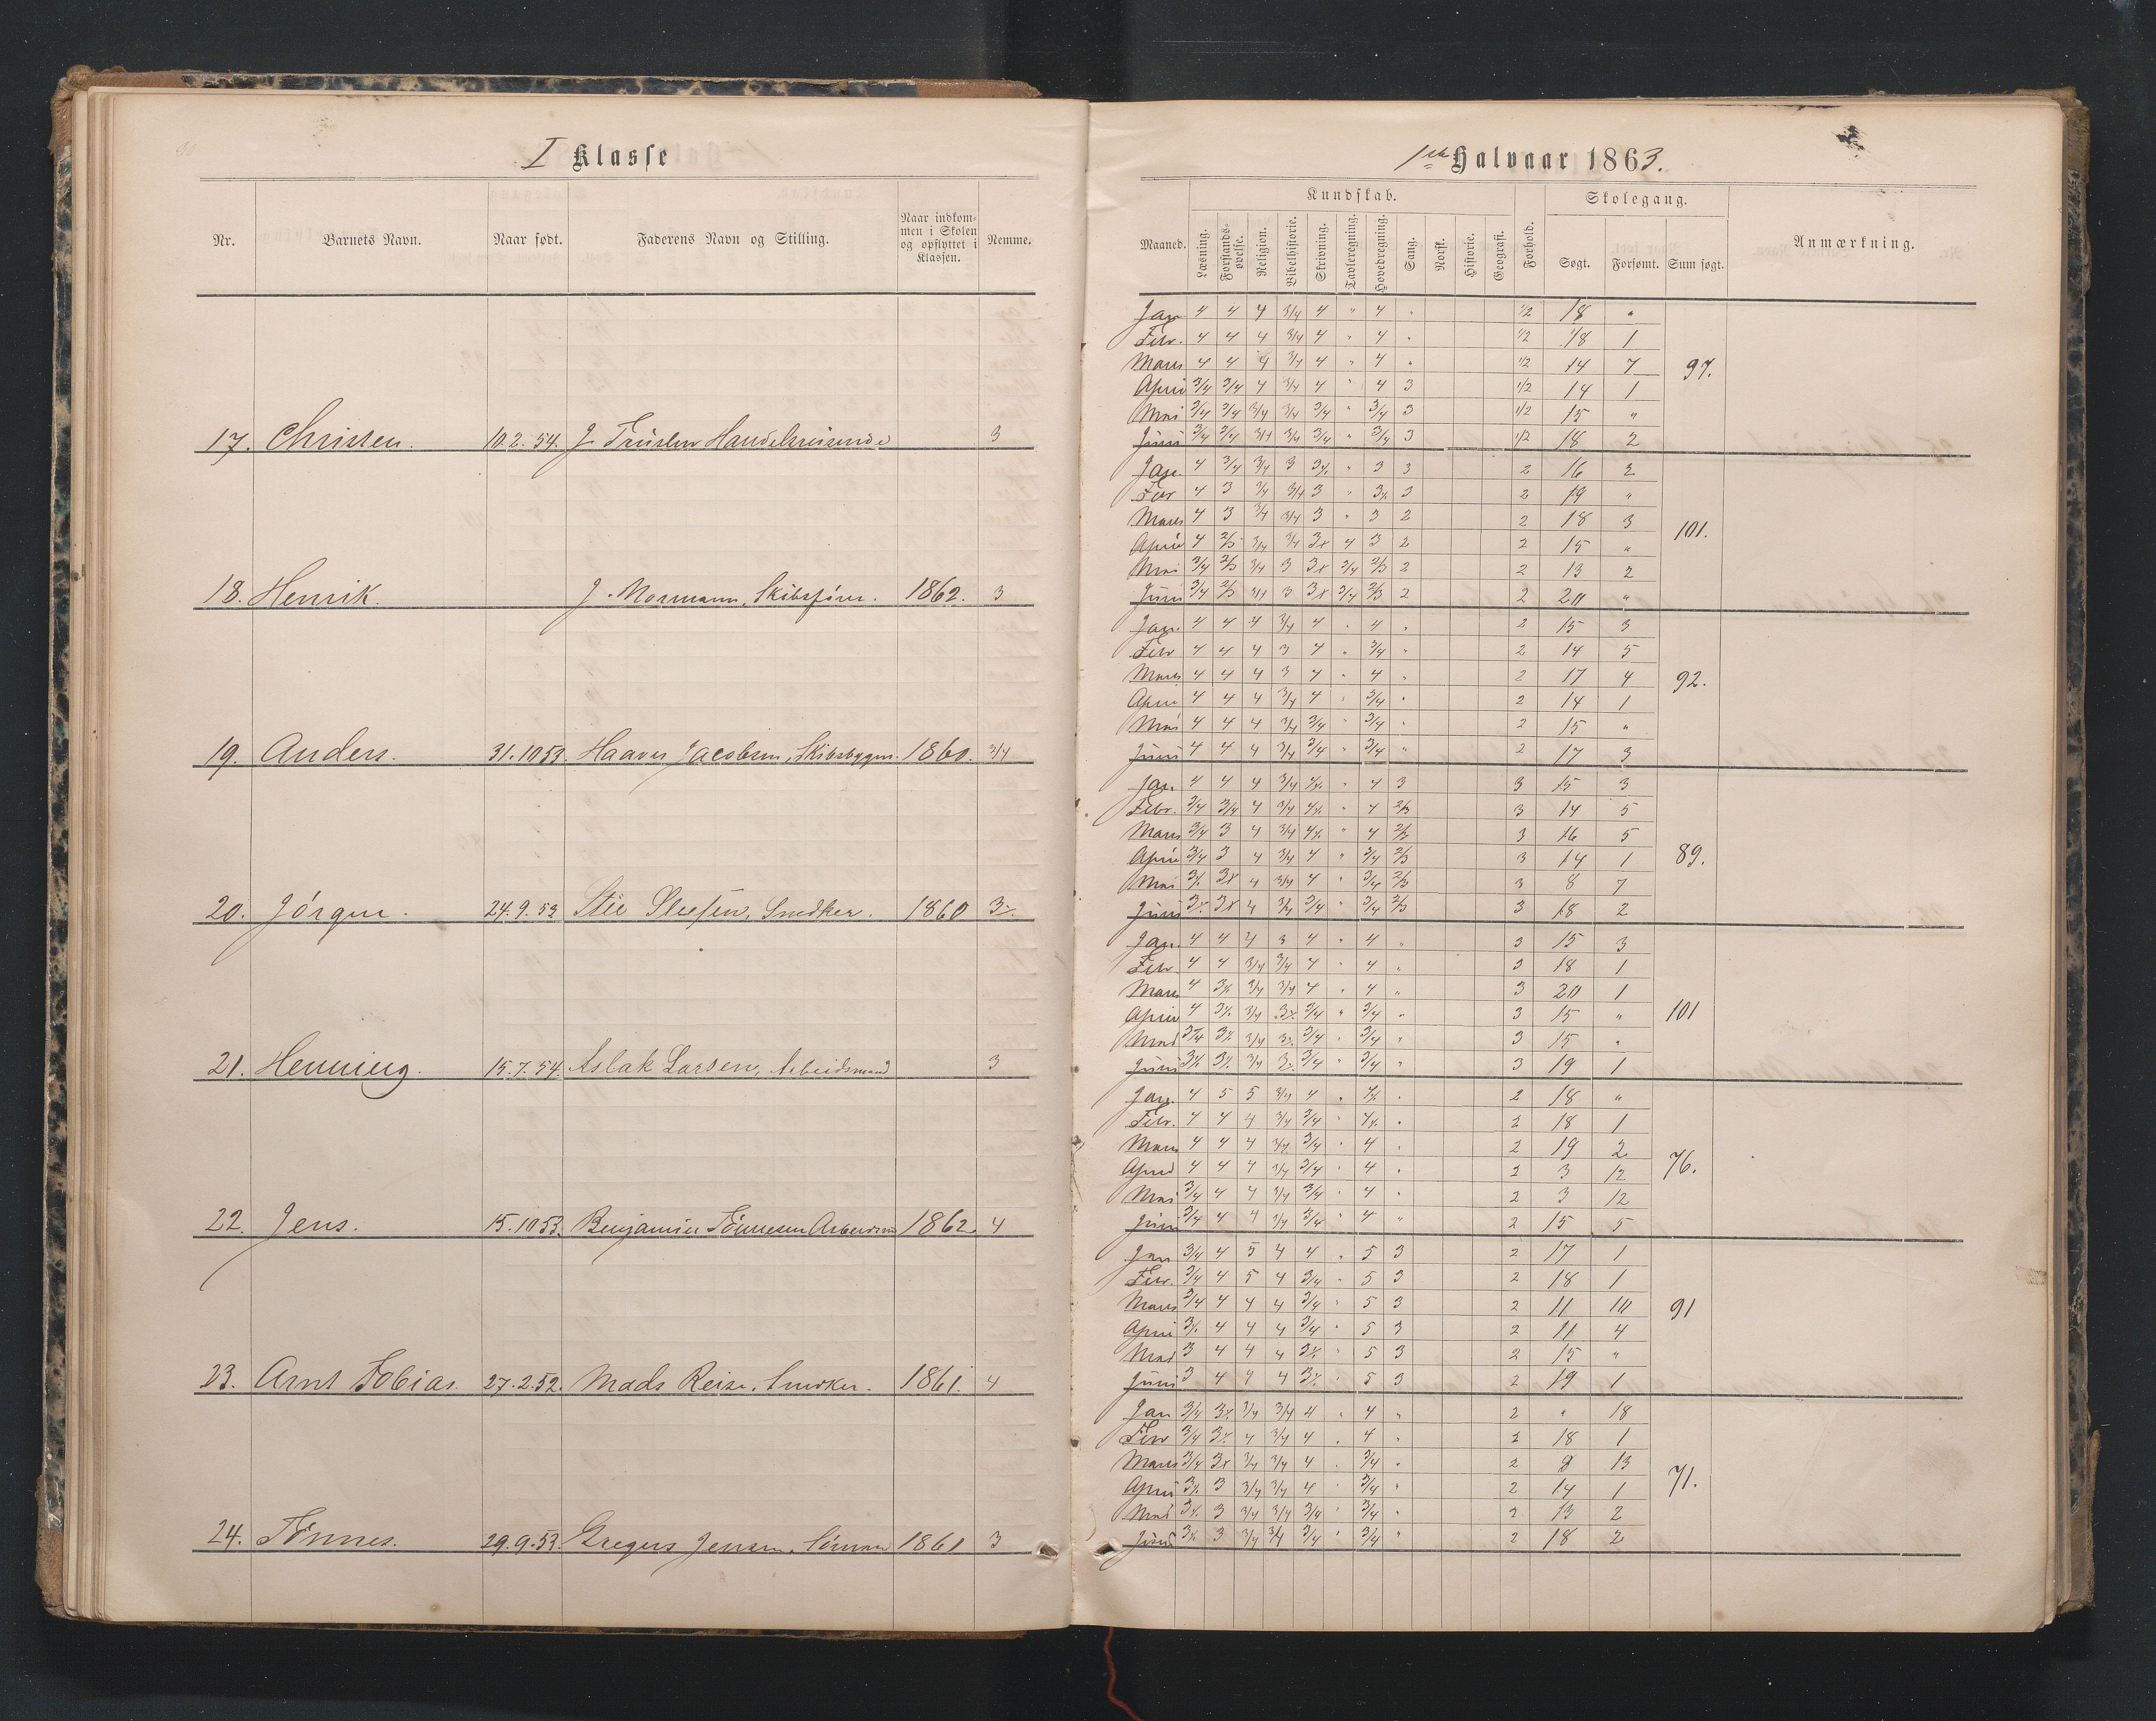 I Klasse
Nr. Barnets Navn. Naar født. Faderens Navn og Stilling. Naar indkom-men i Skolen og opflyttet i Klassen. Nemme.
17. Christen. 10.2.54. J. Handelsreisende 3
18. Henrik. J. Mormann, Skibsfører. 1862. 3
19. Anders. 31.10 53. Haaver Jacobsen, Skibsbygm. 1860. 3/4
20. Jørgen. 24.9.53 Snedker. 1860 3
21. Henning. 15.7.54. Aslak Larsen, Arbeidsmand 3
22. Jens. 15.10 53. Benjamin Tønnesen 1862. 4
23. Arnt Tobias. 27.2.52. Mads Reise, Snedker. 1861. 4
24. Tønnes. 29.9.53 Gregers Jensen, Sømand 1861 3
1ste Halvaar 1863.
Kundskab. Skolegang.
Maaned. Læsning. Forstands-øvelse. Religion. Bibelhistorie. Skrivning. Tavleregning. Hovedregning. Sang. Norsk. Historie. Geografi. Forhold. Søgt. Forsømt. Sum søgt. Anmærkning.
Jan 4 4 4 3/4 4 " 4 " 1/2 18 "
Febr. 4 4 4 3/4 4 " 4 " 1/2 18 1
Marts 4 4 4 3/4 4 " 4 " 1/2 14 7 97.
April 3/4 3/4 4 3/4 4 " 4 3 1/2 14 1
Mai 3/4 3/4 3/4 3/4 3/4 " 3/4 3 1/2 15 "
Juni 3/4 3/4 3/4 3/4 3/4 " 3/4 3 1/2 18 2
Jan. 4 3/4 3/4 3 " 3 3 2 16 2
Febr 4 3 3/4 3/4 3 " 3 2 19 "
Marts 4 3 3/4 3/4 3 " 3 2 2 18 3
April 4 2/3 3/4 3/4 3x 4 3 2 2 15 " 101.
Mai 3/4 2/3 3/4 3 3x 3/4 2/3 2 2 13 2
Juni 3/4 2/3 3/4 3 3x 3/4 2/3 2 2 20 "
Jan. 4 4 4 3/4 4 " 4 " 2 15 3
Febr 4 4 4 3 4 " 3/4 " 2 14 5
Marts 4 4 4 3 4 " 4 " 2 17 4 92.
April 4 4 4 3/4 4 " 3/4 " 2 14 1
Mai 4 4 4 3/4 3/4 " 3/4 " 2 15 "
Juni 4 4 4 3/4 3/4 " 3/4 " 2 17 3
Jan. 4 4 4 3/4 " 4 3 3 15 3
Febr. 3/4 3/4 4 3/4 " 4 2/3 3 14 5
Marts 3/4 3 4 3/4 " 4 2/3 3 16 5
April 3/4 3 4 3/4 4 " 3/4 2/3 3 14 1 89.
Mai 3x 4 3/4 4 " 3/4 2/3 3 8 7
Juni 3x 4 3/4 3/4 " 3/4 2/3 3 18 2
Jan. 4 4 4 3 4 " 4 " 3 15 3
Febr 4 4 3/4 3/4 4 " 4 " 3 18 1
Marts 4 3/4 3/4 4 " 4 " 3 20 1
April 4 3/4 3/4 " 3/4 " 3 15 " 101
Mai 3/4 3/4 3/4 " 3/4 " 3 15 "
Juni 3/4 3/4 " 3/4 " 3 19 1
Jan. 4 5 5 3/4 4 " " 2 18 "
Febr. 4 4 4 3/4 3/4 " " 2 18 1
Marts 4 4 4 3/4 3/4 " 4 " 2 19 2
April 4 4 4 3/4 3/4 " 4 " 2 3 12 76.
Mai 3/4 4 4 3/4 3/4 " 4 " 2 3 12
Juni 3/4 4 4 3/4 3/4 " 4 " 2 15 5
Jan 3/4 4 5 4 4 " 5 3 2 17 1
Febr. 3/4 4 5 4 3/4 " 5 3 2 18 1
Marts 3/4 4 4 4 3/4 " 5 3 2 11 10 91
April 4 4 4 3/4 " 5 3 2 11 4
Mai 3 4 4 4 " 5 3 2 15 "
Juni 3 4 4 4 " 5 3 2 19 1
Jan 3/4 3/4 3/4 4 " 4 " 2 " 18
Febr 3/4 4 3/4 4 " 4 " 2 18 1
Marts 3/4 3x 3/4 3/4 4 " 3/4 " 2 8 13
April 3 3/4 3/4 4 " 3/4 " 2 14 1 71.
Mai 3 3/4 3/4 3/4 " 3/4 " 2 13 2
Juni 3 3/4 3/4 3/4 " 3/4 " 2 18 2